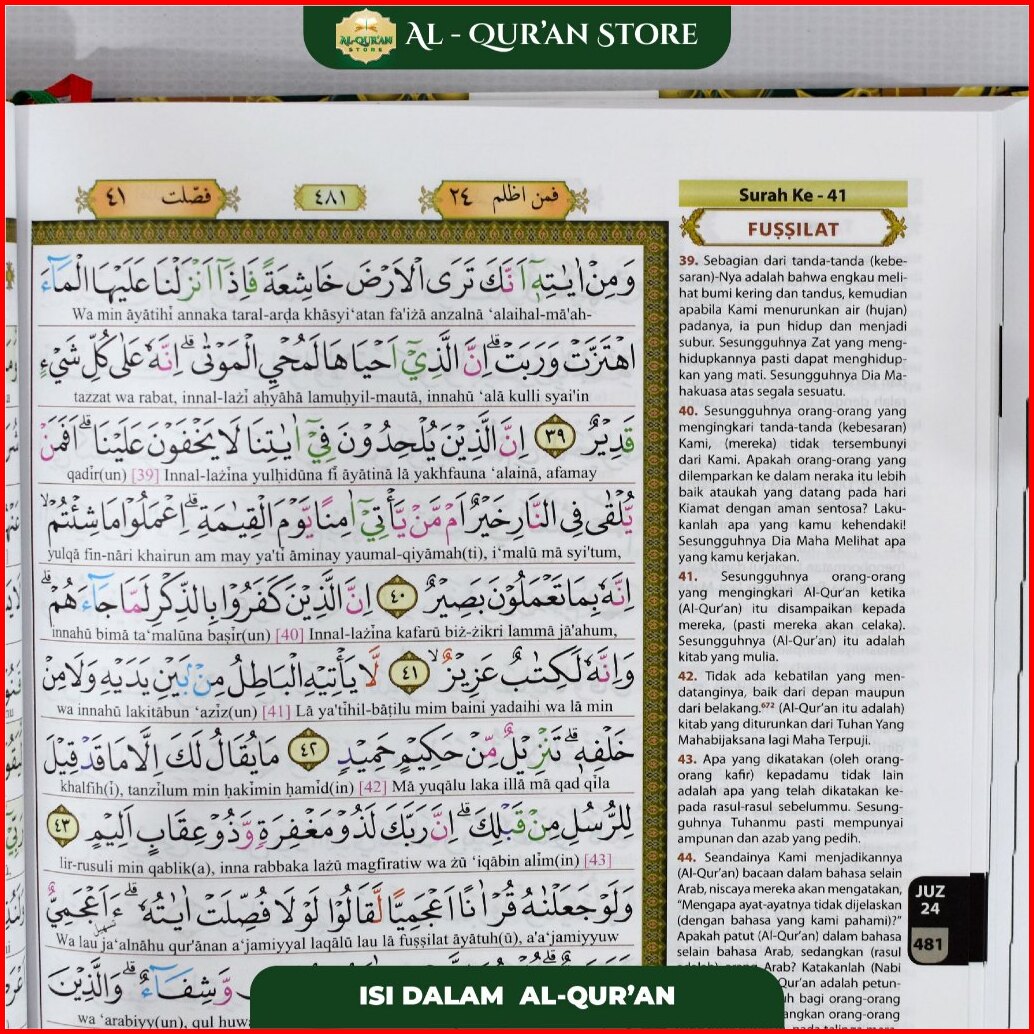 AL-QUR'AN
STORE
AL - QUR'AN STORE
فصّلت ٤١
٤٨١
فمن اظلم ٢٤
وَمِنْ اٰيٰتِهٖٓ اَنَّكَ تَرَى الْاَرْضَ خَاشِعَةً فَاِذَآ اَنْزَلْنَا عَلَيْهَا الْمَاۤءَ
Wa min āyātihī annaka taral-arḍa khāsyi‘atan fa'iżā anzalnā ‘alaihal-mā'ah-
اهْتَزَّتْ وَرَبَتْۗ اِنَّ الَّذِيْٓ اَحْيَاهَا لَمُحْيِ الْمَوْتٰى ۗاِنَّهٗ عَلٰى كُلِّ شَيْءٍ
tazzat wa rabat, innal-lażī aḥyāhā lamuḥyil-mautā, innahū ‘alā kulli syai'in
قَدِيْرٌ ٣٩ اِنَّ الَّذِيْنَ يُلْحِدُوْنَ فِيْٓ اٰيٰتِنَا لَا يَخْفَوْنَ عَلَيْنَاۗ اَفَمَنْ
qadīr(un) [39] Innal-lażīna yulḥidūna fī āyātinā lā yakhfauna ‘alainā, afamay
يُّلْقٰى فِى النَّارِ خَيْرٌ اَمْ مَّنْ يَّأْتِيْٓ اٰمِنًا يَّوْمَ الْقِيٰمَةِ ۗاِعْمَلُوْا مَا شِئْتُمْ ۙ
yulqā fin-nāri khairun am may ya'tī āminay yaumal-qiyāmah(ti), i‘malū mā syi'tum,
اِنَّهٗ بِمَا تَعْمَلُوْنَ بَصِيْرٌ ٤٠ اِنَّ الَّذِيْنَ كَفَرُوْا بِالذِّكْرِ لَمَّا جَاۤءَهُمْ ۗ
innahū bimā ta‘malūna baṣīr(un) [40] Innal-lażīna kafarū biż-żikri lammā jā'ahum,
وَاِنَّهٗ لَكِتٰبٌ عَزِيْزٌ ۙ ٤١ لَّا يَأْتِيْهِ الْبَاطِلُ مِنْۢ بَيْنِ يَدَيْهِ وَلَا مِنْ
wa innahū lakitābun ‘azīz(un) [41] Lā ya'tīhil-bāṭilu mim baini yadaihi wa lā min
خَلْفِهٖ ۗتَنْزِيْلٌ مِّنْ حَكِيْمٍ حَمِيْدٍ ٤٢ مَا يُقَالُ لَكَ اِلَّا مَا قَدْ قِيْلَ
khalfih(ī), tanzīlum min ḥakīmin ḥamīd(in) [42] Mā yuqālu laka illā mā qad qīla
لِلرُّسُلِ مِنْ قَبْلِكَ ۗاِنَّ رَبَّكَ لَذُوْ مَغْفِرَةٍ وَّذُوْ عِقَابٍ اَلِيْمٍ ٤٣
lir-rusuli min qablik(a), inna rabbaka lażū magfiratiw wa żū ‘iqābin alīm(in) [43]
وَلَوْ جَعَلْنٰهُ قُرْاٰنًا اَعْجَمِيًّا لَّقَالُوْا لَوْلَا فُصِّلَتْ اٰيٰتُهٗ ۗ ءَاَعْجَمِيٌّ
تسهيل
Wa lau ja‘alnāhu qur'ānan a‘jamiyyal laqālū lau lā fuṣṣilat āyātuh(ū), a'a‘jamiyyuw
وَّشِفَاۤءٌ ۗ وَالَّذِيْنَ
wa ‘arabiyy(un), qul huw
Surah Ke - 41
FUṢṢILAT
39. Sebagian dari tanda-tanda (kebe-
saran)-Nya adalah bahwa engkau meli-
hat bumi kering dan tandus, kemudian
apabila Kami menurunkan air (hujan)
padanya, ia pun hidup dan menjadi
subur. Sesungguhnya Zat yang meng-
hidupkannya pasti dapat menghidup-
kan yang mati. Sesungguhnya Dia Ma-
hakuasa atas segala sesuatu.
40. Sesungguhnya orang-orang yang
mengingkari tanda-tanda (kebesaran)
Kami, (mereka) tidak tersembunyi
dari Kami. Apakah orang-orang yang
dilemparkan ke dalam neraka itu lebih
baik ataukah yang datang pada hari
Kiamat dengan aman sentosa? Laku-
kanlah apa yang kamu kehendaki!
Sesungguhnya Dia Maha Melihat apa
yang kamu kerjakan.
41. Sesungguhnya orang-orang
yang mengingkari Al-Qur'an ketika
(Al-Qur'an) itu disampaikan kepada
mereka, (pasti mereka akan celaka).
Sesungguhnya (Al-Qur'an) itu adalah
kitab yang mulia.
42. Tidak ada kebatilan yang men-
datanginya, baik dari depan maupun
dari belakang.⁶⁷² (Al-Qur'an itu adalah)
kitab yang diturunkan dari Tuhan Yang
Mahabijaksana lagi Maha Terpuji.
43. Apa yang dikatakan (oleh orang-
orang kafir) kepadamu tidak lain
adalah apa yang telah dikatakan ke-
pada rasul-rasul sebelummu. Sesung-
guhnya Tuhanmu pasti mempunyai
ampunan dan azab yang pedih.
44. Seandainya Kami menjadikannya
(Al-Qur'an) bacaan dalam bahasa selain
Arab, niscaya mereka akan mengatakan,
"Mengapa ayat-ayatnya tidak dijelaskan
(dengan bahasa yang kami pahami)?"
Apakah patut (Al-Qur'an) dalam bahasa
selain bahasa Arab, sedangkan (rasul
Arab? Katakanlah (Nabi
adalah petun-
bagi orang-orang
angkan orang-orang
JUZ
24
481
ISI DALAM AL-QUR'AN